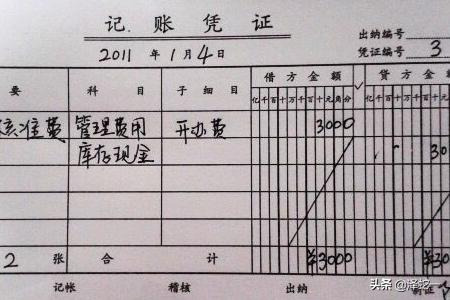 记账凭证
出纳编号
2011年1月4日
凭证编号 3
要 科目 子细目 借方金额 贷方金额
亿千百十万千百十元角分 亿千百十万千百十
核准费 管理费用 开办费 3000
库存现金 30
2张 合计 ¥3000 ¥30
记帐 稽核 出纳 制证
头条